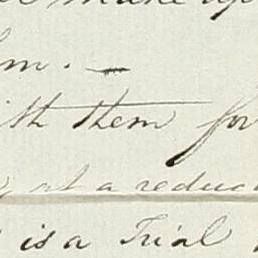 make up
m. —
ith them for
at a reduc
is a Trial